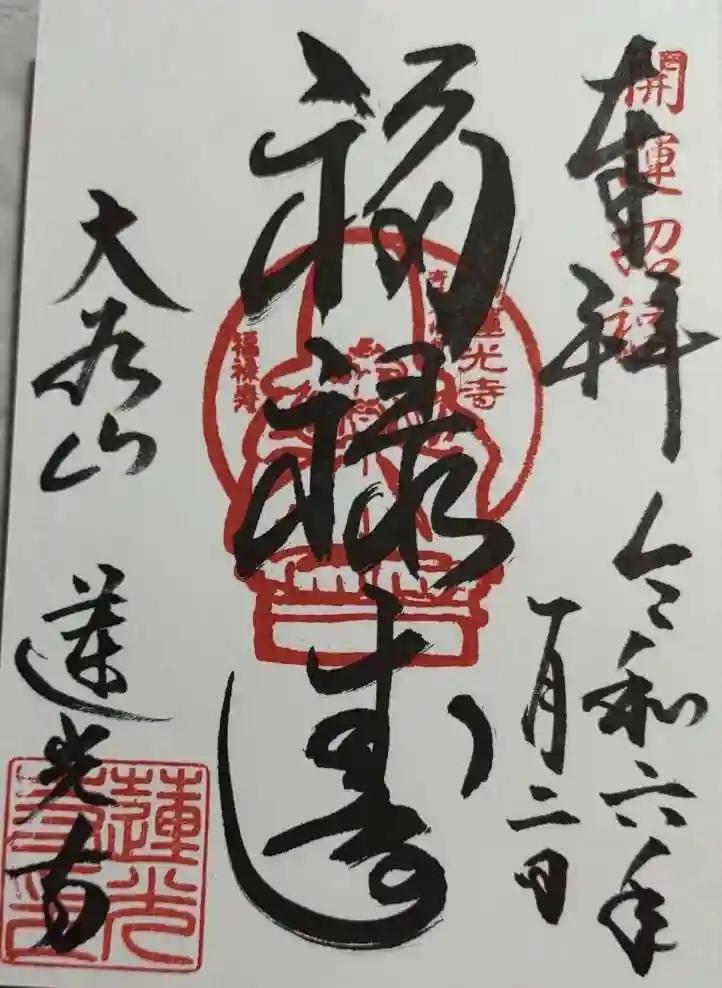 奉拝
開運招福
令和六年
一月二日
福禄寿
蓮光寺
福禄寿
大谷山
蓮光寺
蓮光
寺印